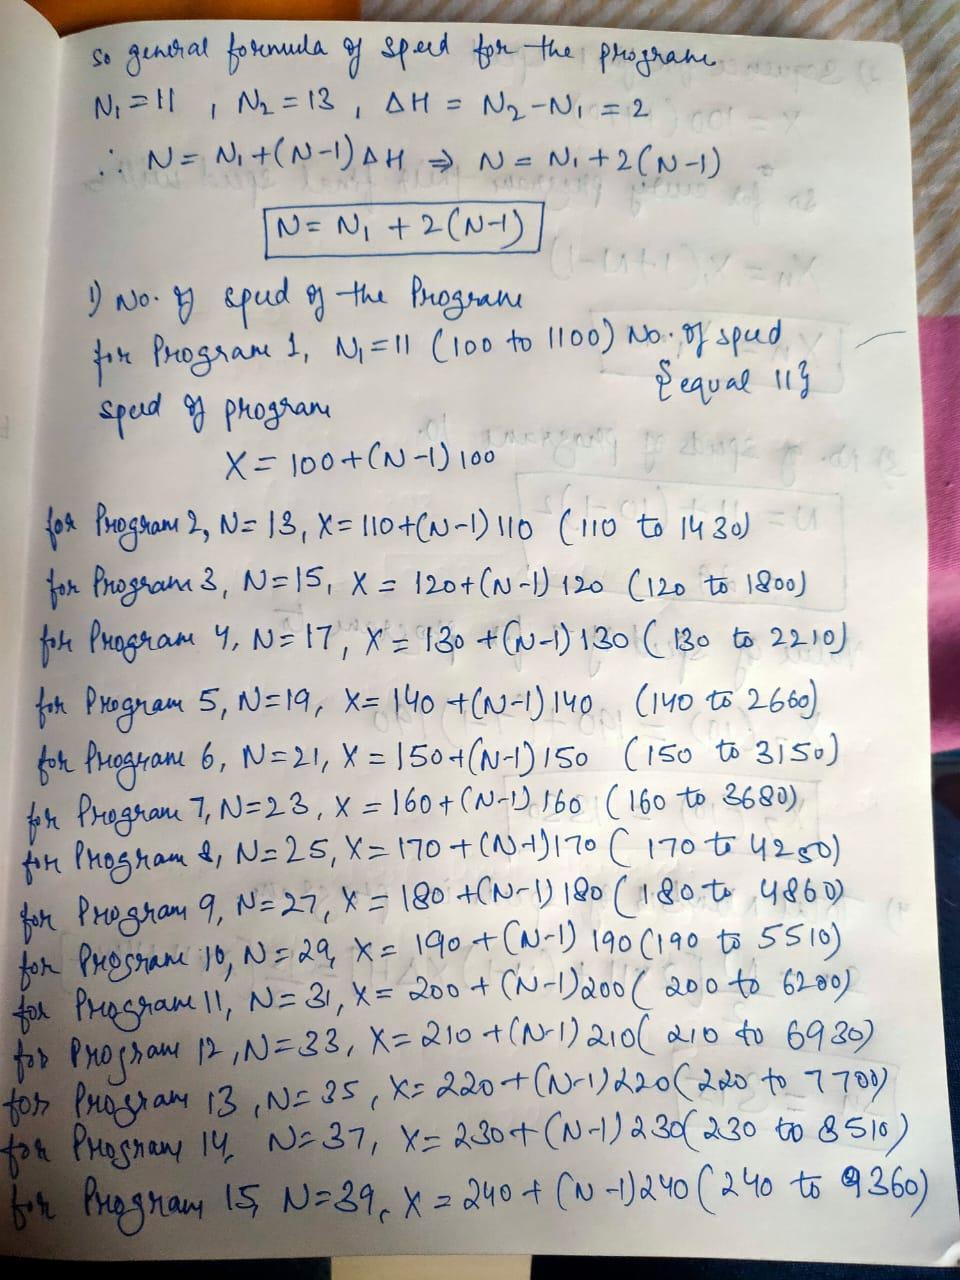 so general formula of speed for the program
N₁ = 11 , N₂ = 13 , ΔH = N₂ - N₁ = 2
∴ N = N₁ + (N-1) ΔH ⇒ N = N₁ + 2(N-1)
N = N₁ + 2(N-1)
1) No. of speed of the Program
for Program 1, N₁ = 11 (100 to 1100) No. of speed
{equal 11}
speed of program
X = 100 + (N-1) 100
for Program 2, N = 13, X = 110 + (N-1) 110 (110 to 1430)
for Program 3, N = 15, X = 120 + (N-1) 120 (120 to 1800)
for Program 4, N = 17, X = 130 + (N-1) 130 (130 to 2210)
for Program 5, N = 19, X = 140 + (N-1) 140 (140 to 2660)
for Program 6, N = 21, X = 150 + (N-1) 150 (150 to 3150)
for Program 7, N = 23, X = 160 + (N-1) 160 (160 to 3680)
for Program 8, N = 25, X = 170 + (N-1) 170 (170 to 4250)
for Program 9, N = 27, X = 180 + (N-1) 180 (180 to 4860)
for Program 10, N = 29, X = 190 + (N-1) 190 (190 to 5510)
for Program 11, N = 31, X = 200 + (N-1) 200 (200 to 6200)
for Program 12, N = 33, X = 210 + (N-1) 210 (210 to 6930)
for Program 13, N = 35, X = 220 + (N-1) 220 (220 to 7700)
for Program 14, N = 37, X = 230 + (N-1) 230 (230 to 8510)
for Program 15, N = 39, X = 240 + (N-1) 240 (240 to 9360)